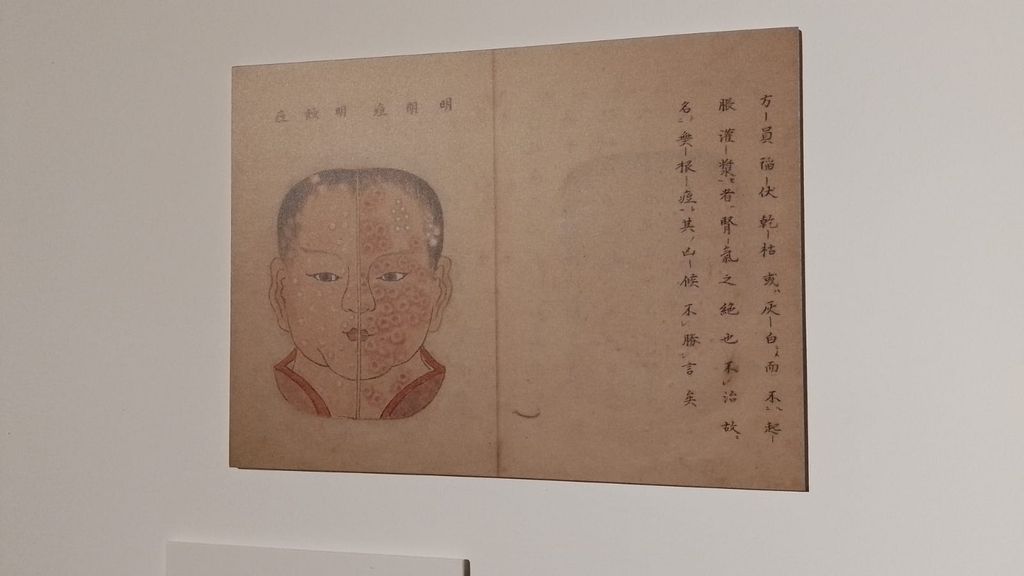 方員陥伏乾枯或灰白而不起
脹灌漿者腎氣之絶也不治故
名根痘其凶候不勝言矣
明痘
明痘